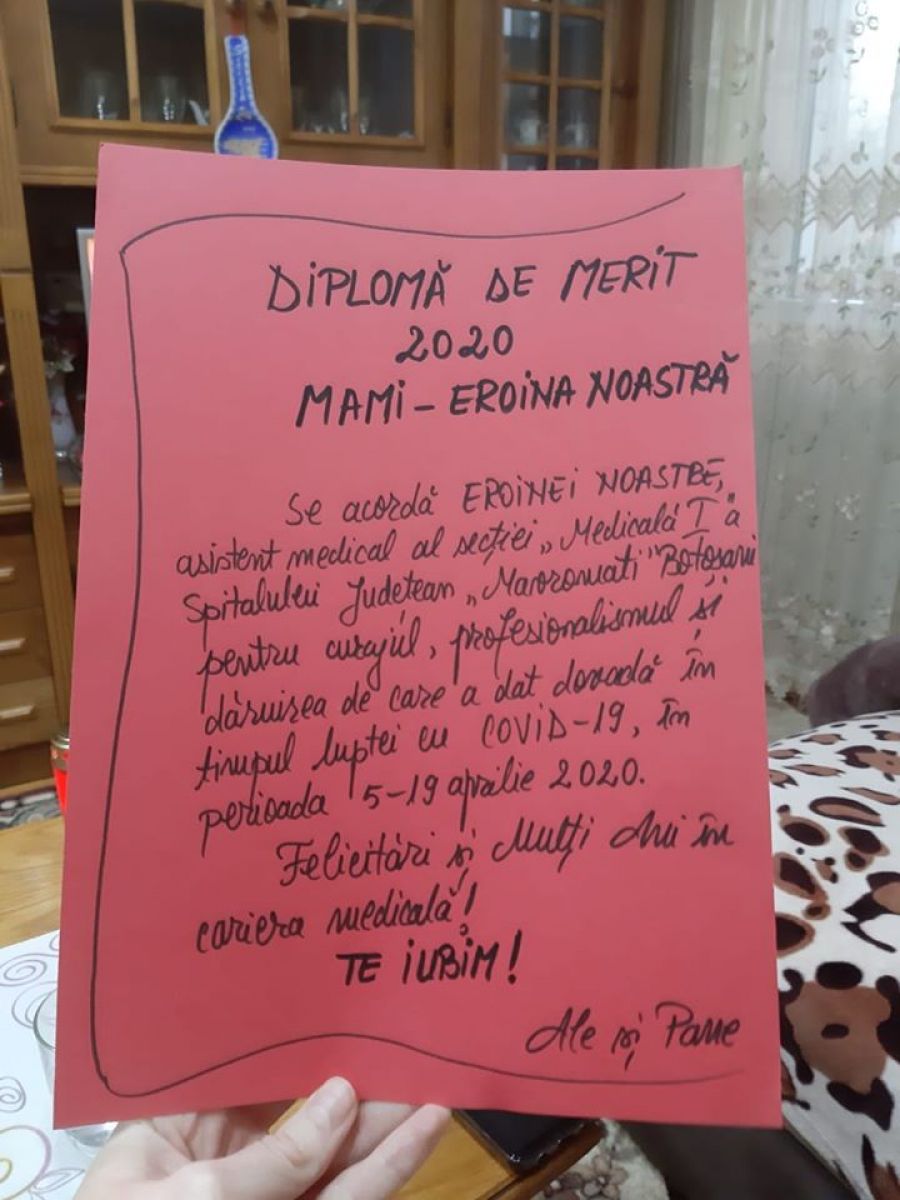 DIPLOMĂ DE MERIT
2020
MAMI - EROINA NOASTRĂ
Se acordă EROINEI NOASTRE,
asistent medical al secției „Medicală I" a
Spitalului Județean „Mavromati" Botoșani
pentru curajul, profesionalismul și
dăruirea de care a dat dovadă în
timpul luptei cu COVID-19, în
perioada 5-19 aprilie 2020.
Felicitări și Mulți Ani în
cariera medicală!
TE IUBIM!
Ale și